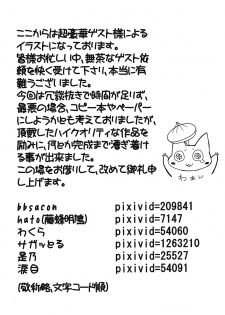 ここからは超豪華ゲスト様による
イラストになっております。
皆様お忙しい中、無茶なゲスト依
頼を快く受けて下さい、本当に有
難うございました。
今回は冗談抜きで時間が足りず、
最悪の場合、コピー本やペーパー
にしようかとも考えておりましたが、
頂戴したハイクオリティな作品を
励みに、何とか完成まで漕ぎ着け
る事が出来ました。
この場をお借りして、改めて御礼申
し上げます。
わぁん
bbsacon pixivid=209841
hato(藤蜂明鳴) pixivid=7147
わくら pixivid=54060
サガッとる pixivid=1263210
是乃 pixivid=25527
涙目 pixivid=54091
(敬称略、文字コード順)